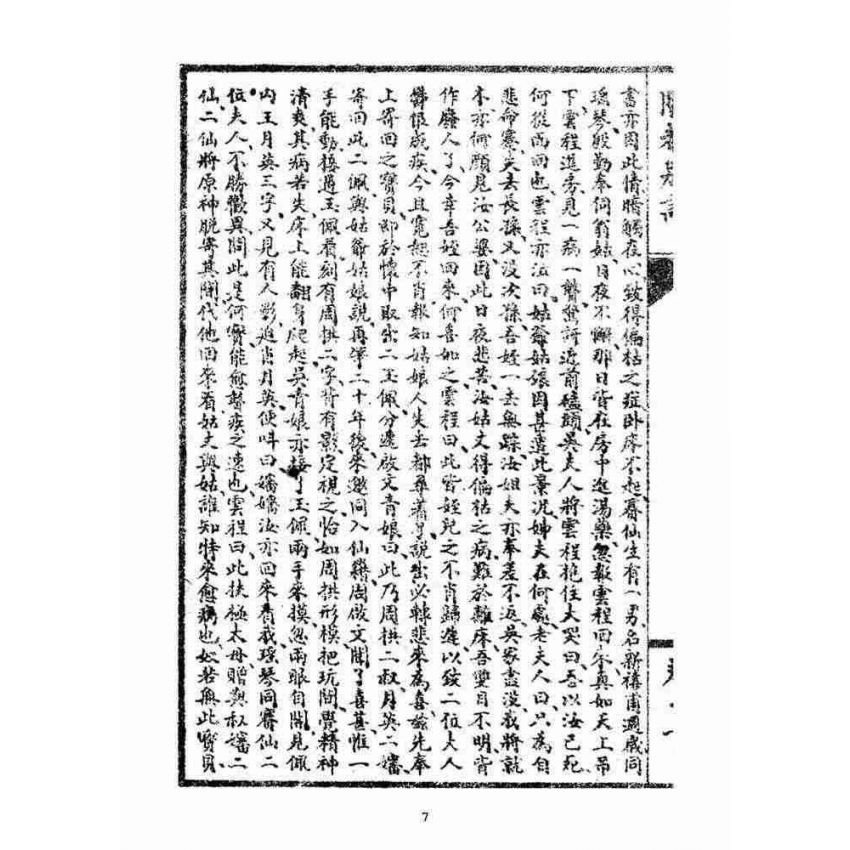 書亦因此情暗觸夜心致得偏枯之症臥床不起賽仙生有一男名新禧甫週歲同
瑤琴殷勤奉伺翁姑日夜不懈那日皆在房中進湯藥忽報雲程回來真如天上吊
下雲程進房見一病一瞽驚訝近前磕頭吳夫人將雲程抱住大哭曰吾以汝已死
何從而回也雲程亦泣曰姑爺姑孃因甚遭此景况姊夫在何處老夫人曰只為自
悲命蹇失去長孫又沒次孫吾姪一去無踪汝姐夫亦奉差不返吳家盡沒我將就
木亦何顏見汝公婆因此日夜悲苦汝姑丈得偏枯之病難於離床吾雙目不明皆
作廢人了今幸吾姪回來何喜如之雲程曰此皆姪兒之不肖歸遲以致二位大人
鬱恨成疾今且寬恕不肖報知姑娘人失去都尋著了說出必轉悲來為喜茲先奉
上寄回之寶貝卽於懷中取出二玉佩分遞啟文青娘曰此乃周拱二叔月英二嬸
寄回此二佩與姑爺姑娘說再停二十年後來邀同入仙籍周啟文聞了喜甚惟一
手能動接過玉佩看刻有周拱二字背有影定視之恰如周拱形模把玩間覺精神
清爽其病若失床上能翻身爬起吳青娘亦接了玉佩兩手來摸忽兩眼自開見佩
內王月英三字又見有人影迫肖月英便叫曰嬸嬸汝亦回來看我瑤琴同賽仙二
位夫人不勝歡異問此是何寶能愈瞽疾之速也雲程曰此扶極太母贈與叔嬸二
仙二仙將原神脫寄其間代他回來看姑丈與姑誰知特來愈病也奴若無此寶貝
7